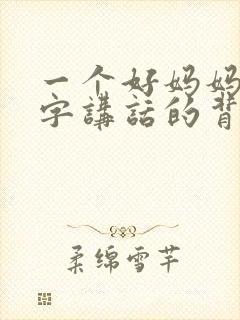 一个好妈妈
字講話的背
柔绵雪芊